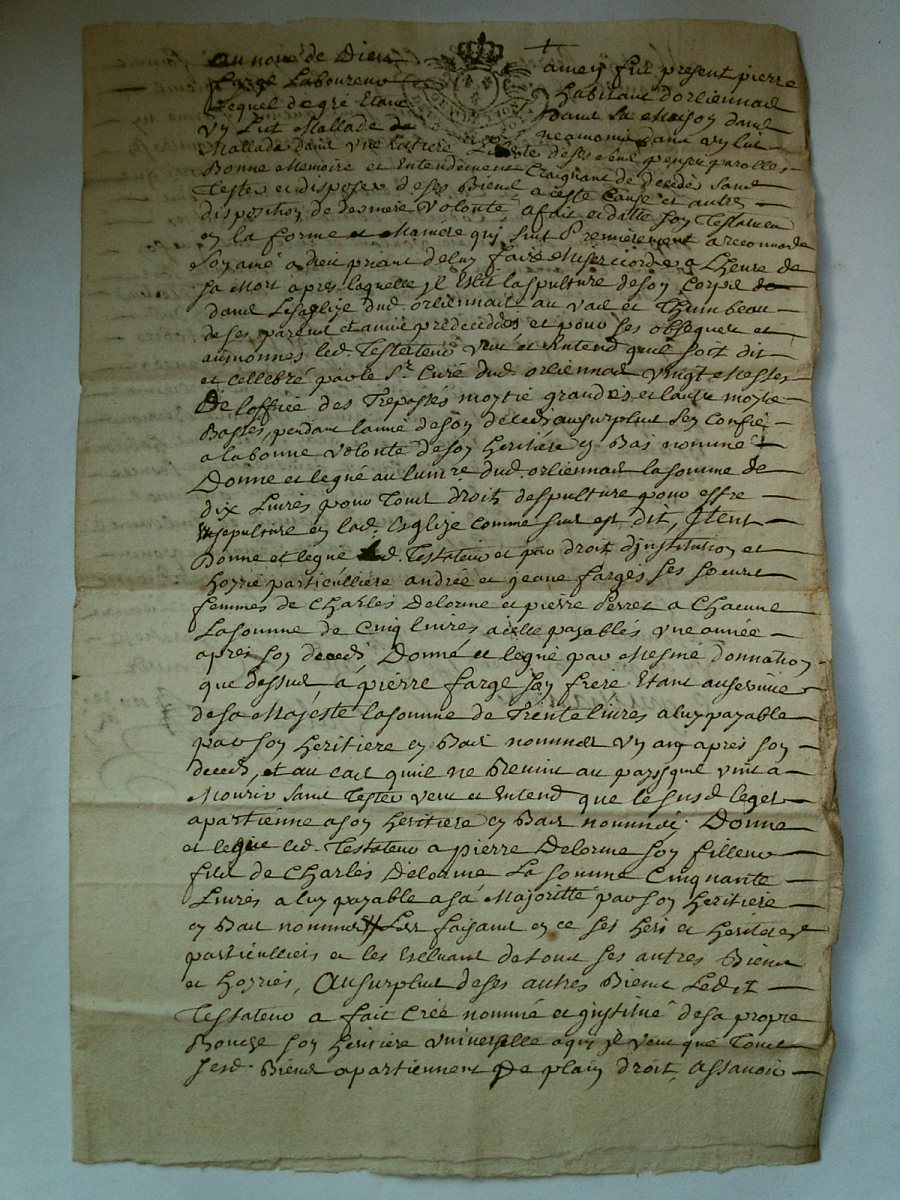 au nom de Dieu amen fut present pierre
farge Laboureur habitant dorliennas
Lequel de gré Etant dans sa Maison dans
vn Lict Mallade de neamoins dans vn lit
Mallade dans vne Lictiere de ses sens pensée parolles
Bonne Memoire et Entendement Craignant de deceder sans
Tester et disposer de ses Biens a ceste Cause et autres
disposition de derniere volonté, a fait et dicte son Testamen
en la forme et Maniere qui suit Premierement a recommandé
son amé a dieu priant de luy faire Misericorde a Lheure de
sa Mort apres laquelle jl Eslit la spulture de son Corps
dans Lesaglize dud. orliennas au vas et Thumbeau
de ses parens et amis predecedés et pour ses obseques et
aumonnes led. Testateur veut et Entend quil soit dit
et cellebré par le Sr. Curé dud. orliennas vingt Messes
De loffice des Trepassés moytié grandes et lautre moytie
Basses, pendant lannée de son deceds au surplus sen confie
a la bonne volonté de son heritiere en Bas nommée
Donne et legué au lumre. dud. orliennas la somme de
dix Livres pour Tous droitz despulture pour estre
ensepulture en lad. Esglize comme sus est dit, Jtent
Donne et legue led. Testateur et par droit djnstitution et
hoyrie particulliere andrée et jeane farges ses soeurs
femmes de Charles Delorme et pierre Perret a Chacune
La somme de Cinq livres a elle payables vne année
apres son deceds, Donne et legué par Mesme donnation
que dessus a pierre farge son frere Etant au service
de sa Majesté la somme de Trente livres a luy payable
par son heritiere en Bas nommée vn an apres son
deceds, et au cas quil ne Revint au pays quil vint a
Mourir sans Tester veut et Entend que le susd. leget
apartienne a son heritiere en Bas nommée. Donne
et legue led. Testateur a pierre Delorme son filleur
filz de Charles Delorme La somme Cinquante
Livres a luy payable a sa Majoritté par son heritiere
en Bas nommée Les faisant en ce ses hers et heritiers
particulliers et les Excluant de tous ses autres Biens
et hoyries, Au surplus de ses autres Biens Ledit
Testateur a fait Créé nommé et jnstitué de sa propre
Bouche son heritiere vniverselle a qui jl veut que Tous
sesd. Biens apartiennent De plain droit, assavoir